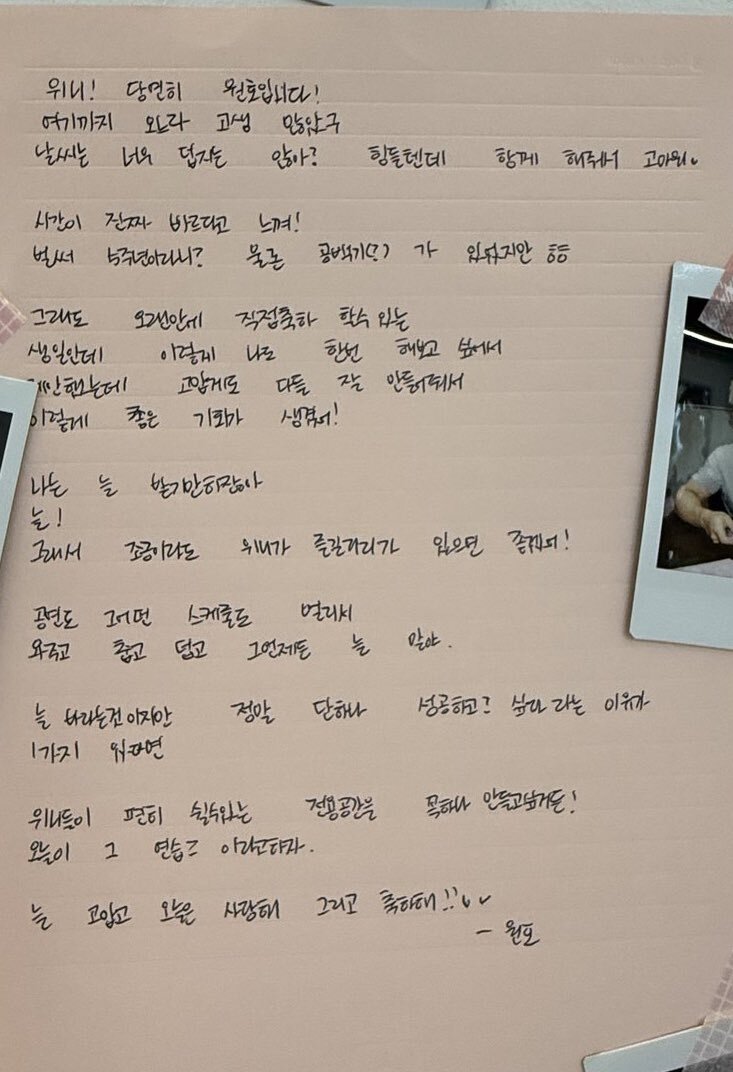 위니! 당연히 원호입니다!
여기까지 오느라 고생 많았구
날씨는 너무 덥지는 않아? 힘들텐데 함께 해줘서 고마워
시간이 진짜 빠르다고 느껴!
벌써 5주년이라니? 물론 공백기(?)가 있었지만 ㅎㅎ
그래도 오랜만에 직접축하 할수있는
생일인데 이렇게 나도 한번 해보고 싶어서
했는데 고맙게도 다들 잘 만들어줘서
이렇게 좋은 기회가 생겼어!
나는 늘 받기만하잖아
늘!
그래서 조금이라도 위니가 즐길거리가 있으면 좋겠어!
공연도 그 어떤 스케줄도 멀리서
와주고 춥고 덥고 그언제든 늘 말야.
늘 바라는것이지만 정말 단하나 성공하고 싶다 라는 이유가
1가지 있다면
위니들이 편히 쉴수있는 전용공간을 꼭하나 만들고싶거든!
오늘이 그 연습 이라고하자.
늘 고맙고 오늘은 사랑해 그리고 축하해!!
- 원호